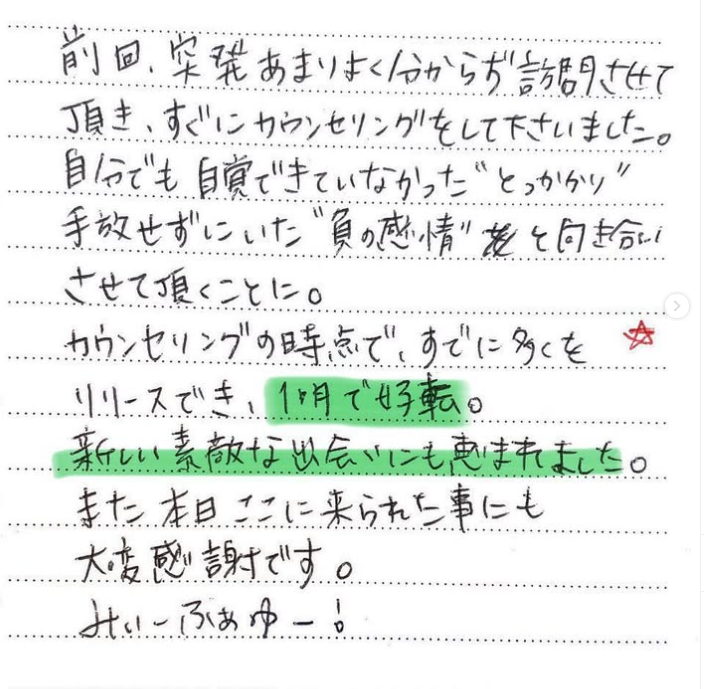 前回、突発あまりよく分からず訪問させて
頂き、すぐにカウンセリングをして下さいました。
自分でも自覚できていなかった“とっかかり”
手放せずにいた“負の感情”と向き合い
させて頂くことに。
カウンセリングの時点で、すでに多くを
リリースでき、1ヶ月で好転。
新しい素敵な出会いにも恵まれました。
また本日ここに来られた事にも
大変感謝です。
みぃーふぁゆー!